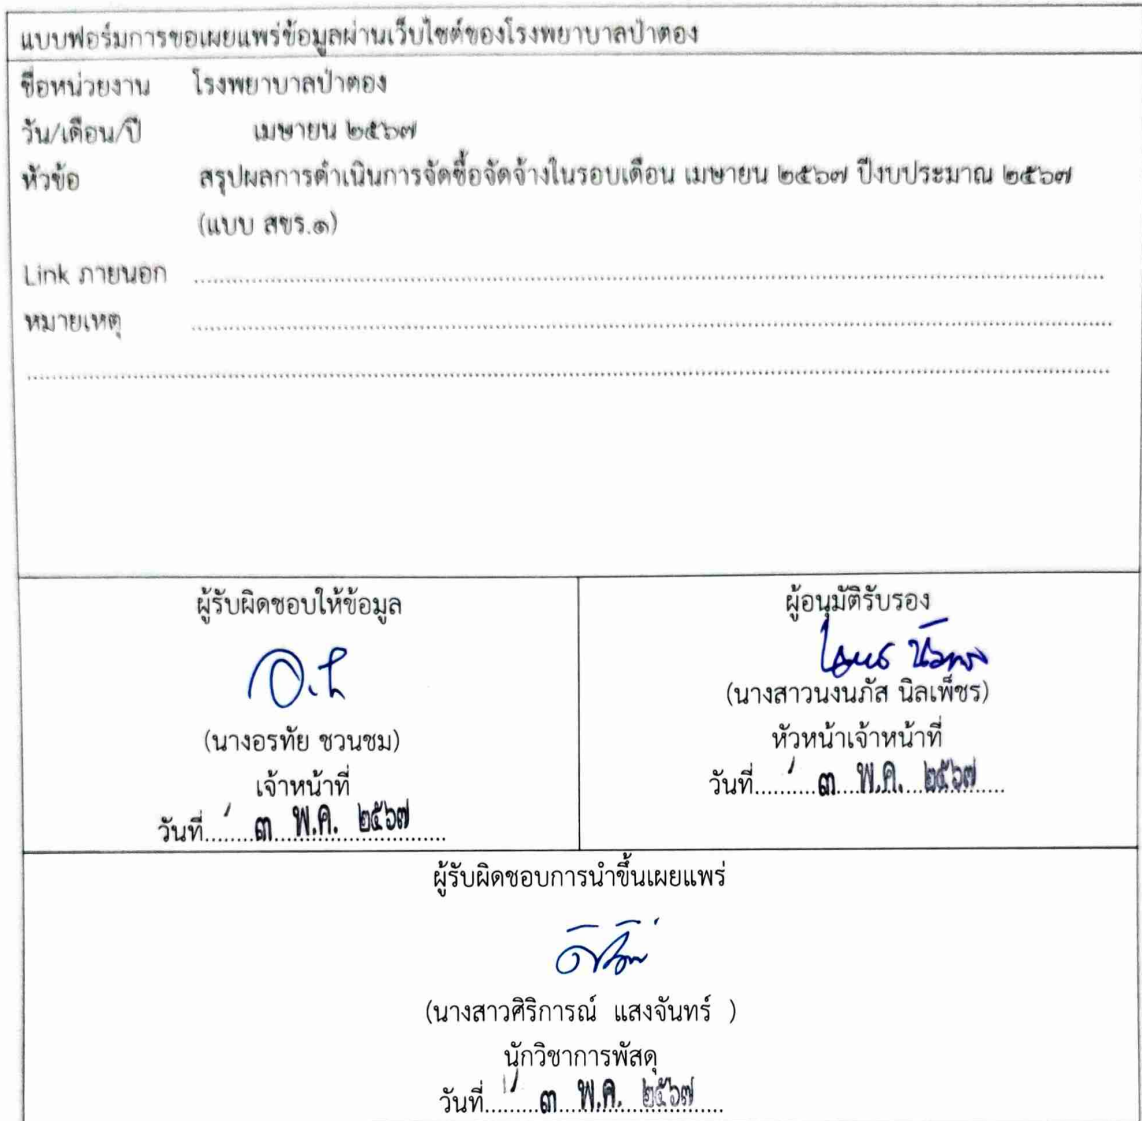 แบบฟอร์มการขอเผยแพร่ข้อมูลผ่านเว็บไซต์ของโรงพยาบาลป่าตอง
ชื่อหน่วยงาน โรงพยาบาลป่าตอง
วัน/เดือน/ปี เมษายน ๒๕๖๗
หัวข้อ สรุปผลการดำเนินการจัดซื้อจัดจ้างในรอบเดือน เมษายน ๒๕๖๗ ปีงบประมาณ ๒๕๖๗
(แบบ สขร.๑)
Link ภายนอก
หมายเหตุ
ผู้รับผิดชอบให้ข้อมูล
อ.ช
(นางอรทัย ชวนชม)
เจ้าหน้าที่
วันที่ ๓ พ.ค. ๒๕๖๗
ผู้อนุมัติรับรอง
(นางสาวนงนภัส นิลเพ็ชร)
หัวหน้าเจ้าหน้าที่
วันที่ ๓ พ.ค. ๒๕๖๗
ผู้รับผิดชอบการนำขึ้นเผยแพร่
(นางสาวศิริการณ์ แสงจันทร์ )
นักวิชาการพัสดุ
วันที่ ๓ พ.ค. ๒๕๖๗